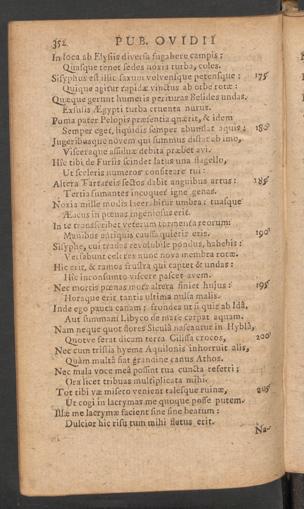 352 PUB. OVIDII
In loca ab Elysiis diversa fugabere campis:
Quasque tenet sedes noxia turba, coles.
Sisyphus est illic saxum volvensque petensque: 175
Quique agitur rapidæ vinctus ab orbe rotæ:
Quæque gerunt humeris perituras Belides undas,
Exsulis Ægypti turba cruenta nurus.
Poma pater Pelopis præsentia quærit, & idem
Semper eget, liquidis semper abundat aquis: 180
Jugeribusque novem qui summus distat ab imo,
Visceraque assiduæ debita præbet avi.
Hic tibi de Furiis scindet latus una flagello,
Ut sceleris numeros confiteare tui:
Altera Tartareis sectos dabit anguibus artus: 185
Tertia fumantes incoquet igne genas.
Noxia mille modis lacerabitur umbra: tuasque
Æacus in pœnas ingeniosus erit.
In te transscribet veterum tormenta reorum:
Manibus antiquis causa quietis eris. 190
Sisyphe, cui tradas revolubile pondus, habebis:
Versabunt celeres nunc nova membra rotæ.
Hic erit, & ramos frustra qui captet & undas:
Hic inconsumto viscere pascet avem.
Nec mortis pœnas mors altera finiet hujus: 195
Horaque erit tantis ultima nulla malis.
Inde ego pauca canam; frondes ut si quis ab Idâ,
Aut summam Libyco de mare carpat aquam.
Nam neque quot flores Siculâ nascantur in Hyblâ,
Quotve ferat dicam terra Cilissa crocos, 200
Nec cum tristis hyems Aquilonis inhorruit alis,
Quàm multâ fiat grandine canus Athos.
Nec mala voce meâ possint tua cuncta referri;
Ora licet tribuas multiplicata mihi.
Tot tibi væ misero venient talesque ruinæ, 205
Ut cogi in lacrymas me quoque posse putem.
Illæ me lacrymæ facient sine fine beatum:
Dulcior hic risu tum mihi fletus erit.
Na-